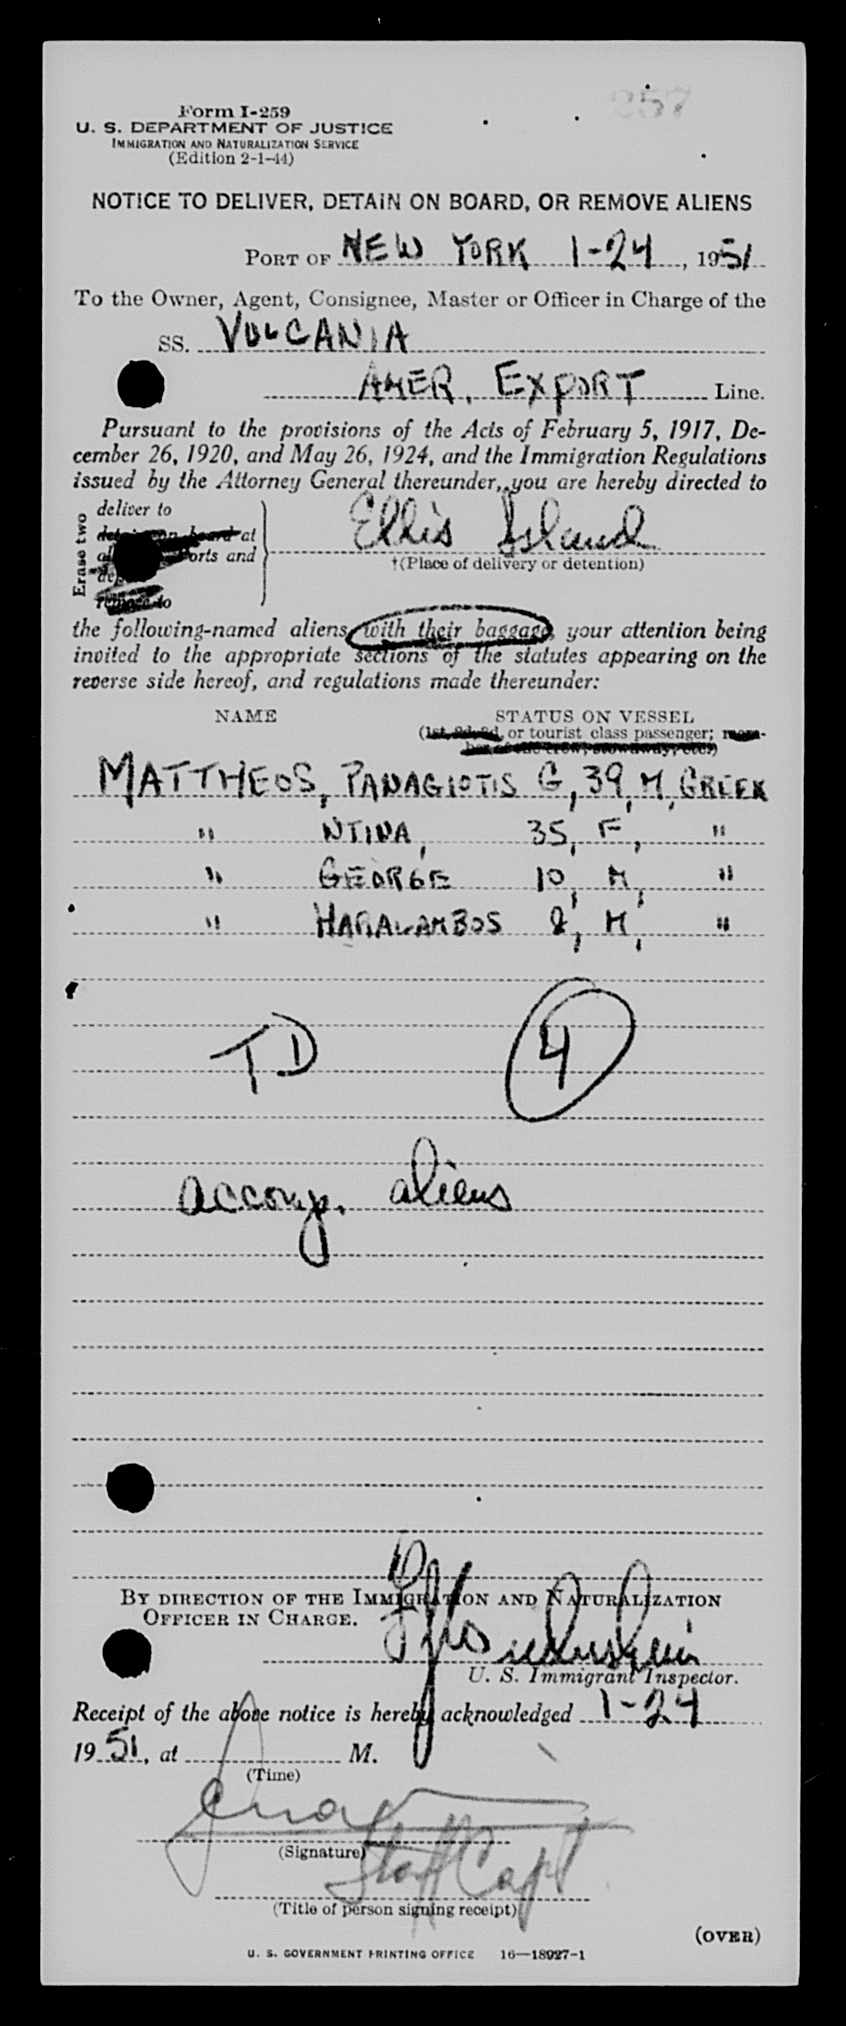 257
Form I-259
U. S. DEPARTMENT OF JUSTICE
IMMIGRATION AND NATURALIZATION SERVICE
(Edition 2-1-44)
NOTICE TO DELIVER, DETAIN ON BOARD, OR REMOVE ALIENS
PORT OF NEW YORK 1-24, 1951
To the Owner, Agent, Consignee, Master or Officer in Charge of the
SS. VULCANIA
AMER. EXPORT Line.
Pursuant to the provisions of the Acts of February 5, 1917, De-
cember 26, 1920, and May 26, 1924, and the Immigration Regulations
issued by the Attorney General thereunder, you are hereby directed to
Erase two
deliver to
detain on board at
ports and
remove to
Ellis Island
†(Place of delivery or detention)
the following-named aliens with their baggage, your attention being
invited to the appropriate sections of the statutes appearing on the
reverse side hereof, and regulations made thereunder:
NAME STATUS ON VESSEL
(1st, 2d, 3d, or tourist class passenger; mem-
ber of the crew, stowaway, etc.)
MATTHEOS, PANAGIOTIS G, 39, M, GREEK
" NTINA, 35, F, "
" GEORGE 10, M, "
" HARALAMBOS 8, M, "
TD 4
accomp. aliens
BY DIRECTION OF THE IMMIGRATION AND NATURALIZATION
OFFICER IN CHARGE.
U. S. Immigrant Inspector.
Receipt of the above notice is hereby acknowledged 1-24
1951, at M.
(Time)
(Signature)
Staff Capt
(Title of person signing receipt)
(OVER)
U. S. GOVERNMENT PRINTING OFFICE 16—18927-1